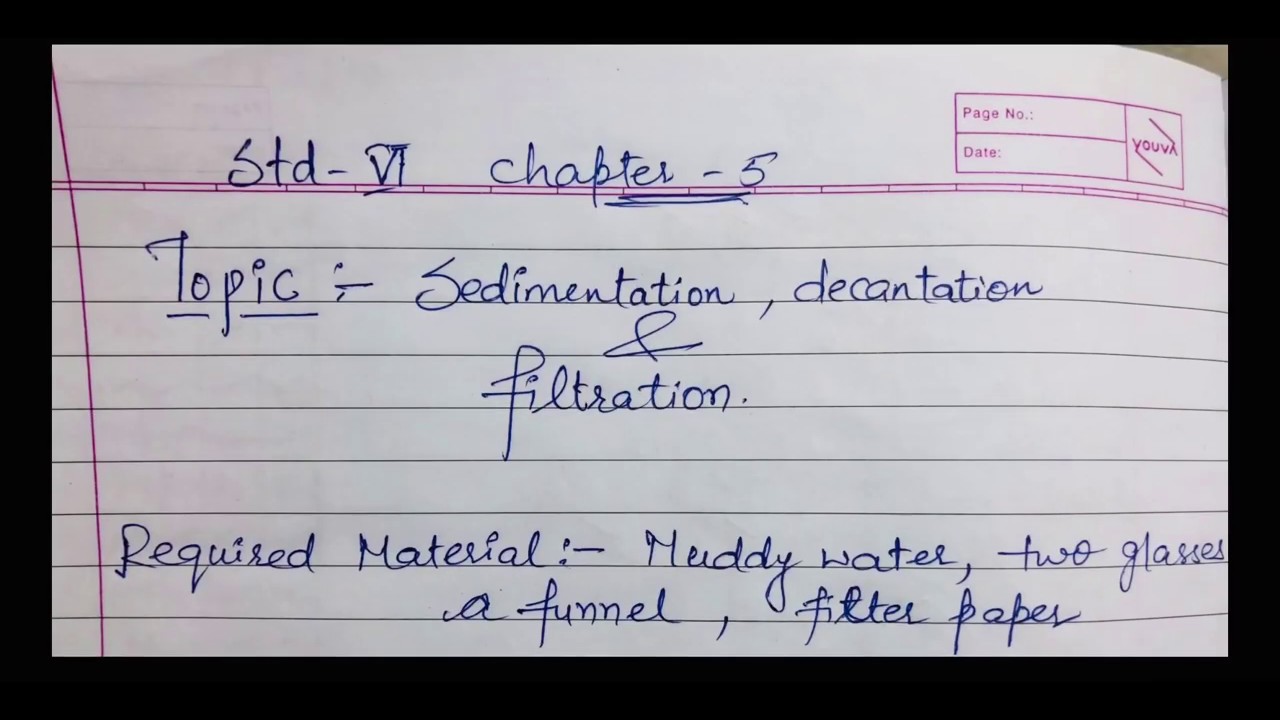 Page No.:
Date:
YOUVA
Std - VI chapter - 5
Topic :- Sedimentation, decantation
&
filtration.
Required Material :- Muddy water, two glasses
a funnel, filter paper